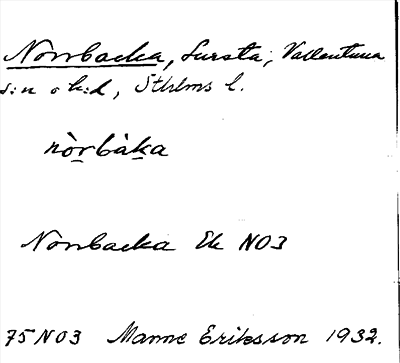 Norrbacka, Lursta, Vallentuna
s:n o h:d, Sthlms l.
nòrbàka
Norrbacka Ek NO3
75 NO3 Manne Eriksson 1932.